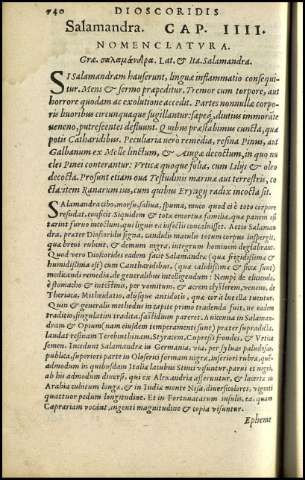 740 DIOSCORIDIS
Salamandra. CAP. IIII.
NOMENCLATVRA.
Græ. σαλαμάνδρα. Lat. & Ita. Salamandra.
SI Salamandram hauserunt, linguæ inflammatio consequi-
tur. Mens & sermo præpeditur. Tremor cum torpore, at
horrore quodam ac exolutione accedit. Partes nonnullæ corpo-
ris liuoribus circumquaque sugillantur: sæpe, diutius immorate
veneno, putrescentes defluunt. Quibus præstabimus cuncta, quæ
potis Catharidibus. Peculiaria verò remedia, resina Pinus, aut
Galbanum ex Melle linctum, & Aiuga decoctum, in quo nu
clei Pinei conterantur: Vrtica quoque folia, cum Lilijs & oleo
decocta. Prosunt etiam oua Testudinis marinæ aut terrestris, co
cta: item Ranarum ius, cum quibus Eryngij radix incocta sit.
SAlamandra cibo, morsu, saliua, spuma, muco quod ei è toto corpore
resudat, conficit Siquidem & totæ armentorum familiæ, quæ panem
tarint furno incoctum, qui ligno ea infectus concaluisset. Actis Salaman
dra, præter Dioscoridis signa, candidis maculis totum corpus insergit,
quæ breui rubent, & demum nigræ, integrum hominem deglabrant.
Quod vero Dioscorides eadem facit Salamandræ (quæ frigidissima &
humidissima est) cum Cantharidibus, (quæ calidissimæ & siccæ sunt)
medicandi remedia, de generalibus intelligendum: Nempe de educendo,
è stomacho & intestinis, per vomitum, & acrem clysterem, veneno, de
Theriaca, Mithridatio, alijsque antidotis, quæ cor à lœtella tuentur.
Quin & generalis methodus in tabide primo tradenda fuit, ne eadem
tradito, singulatim tradita fastidium pareret. Auicenna in Salaman-
dram & Opium (nam eiusdem temperamenti sunt) præter supradicta,
laudat resinam Terebinthinam, Styracem, Cupressi frondes, & Vrticæ
semen. Inuidunt Salamandræ in Germania, viæ, per syluas paludosas,
publicæ, superiori parte in Olosericis formam nigra, inferiori rubra, quæ
admodum in quibusdam Italiæ latubus Stinci visuntur, parui & nigri, ab
ab his admodum diuersi, qui ex Alexandria afferuntur, & lacertæ in
Arabia cubitum longæ, & in Indiæ monte Nisa, diuersicolores, viginti
quattuor pedum longitudine. Et in Fortunatarum insulis, ea, quam
Caprariam vocant, ingenti magnitudine & copia visuntur.
Epheme